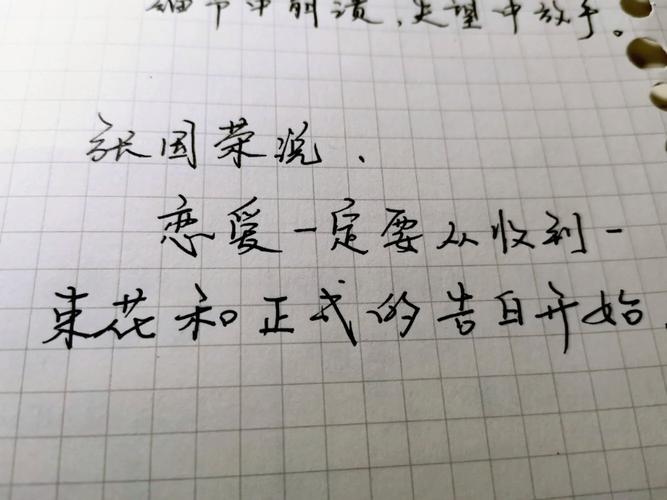 细节中崩溃,失望中放手。
张国荣说、
恋爱一定要从收到一
束花和正式的告白开始